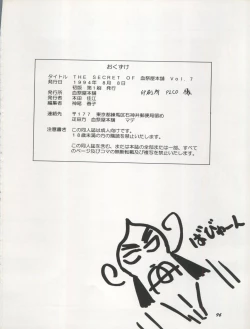 おくずけ
タイトル THE SECRET OF 血祭屋本舗 Vol. 7
発行日 1994年 8月 8日
初版 第1刷 発行
発行所 血祭屋本舗 印刷所 PICO 様
発行者 本田 佳江
編集者 神尾 泰子
連絡先 〒177 東京都練馬区石神井郵便局留め
正田方 血祭屋本舗 マダ
注意書き この同人誌は成人向けです。
18歳未満の方の購読を禁止いたします。
この同人誌を含む、または本誌の全部または一部、すべて
のページ及びコマの無断転載及び複写を禁止いたします。
ばびゅーん